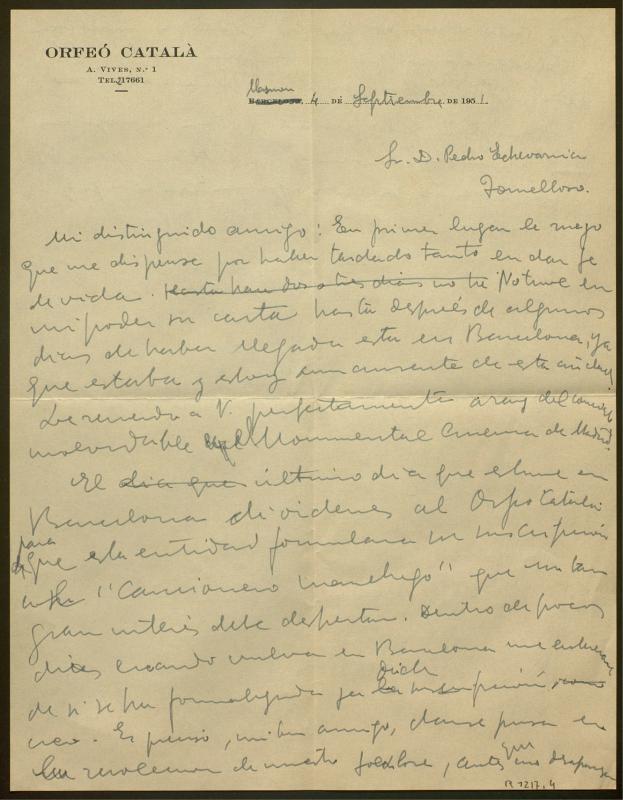 ORFEÓ CATALÀ
A. Vives, n.º 1
Tel. 17661
Barcelona, 4 de Septiembre de 1951
Sr. D. Pedro Echevarria
Tomelloso.
Mi distinguido amigo: En primer lugar le ruego
que me dispense por haber tardado tanto en dar fe
de vida. Hasta hace dos o tres dias no he No tuve en
mi poder su carta hasta después de algunos
dias de haber llegada esta en Barcelona, ya
que estaba y estoy aun ausente de esta ciudad.
Le recuerdo a V. perfectamente a raiz del concierto
inolvidable del Monumental Cinema de Madrid.
El dia que último dia que estuve en
Barcelona di ordenes al Orfeó Català
para que esta entidad formulara su suscripción
"Cancionero manchego" que un tan
gran interés debe despertar. Dentro de pocos
dias cuando vuelva en Barcelona me enteraré
de si se ha formalizado ya la dicha suscripción, como
creo. Es preciso, mi buen amigo, darse prisa en
la de nuestro folklore, antes que desaparezca
R 7217, 4